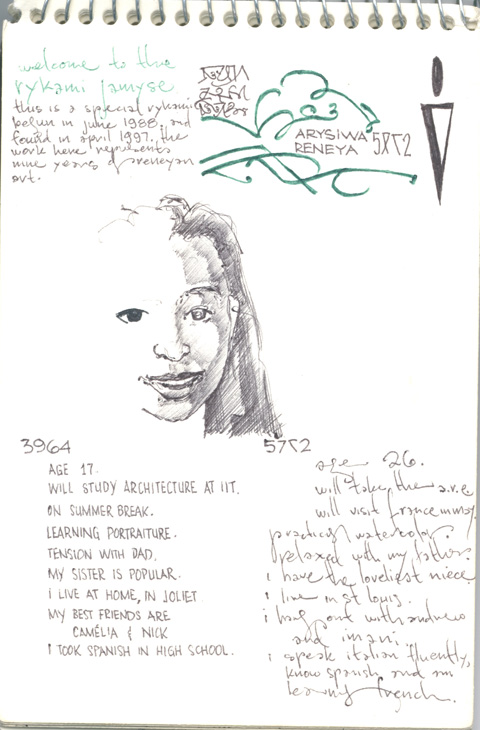 welcome to the
rykami jamyse
this is a special rykami
begun in june 1988 and
found in april 1997. the
work here represents
nine years of preneyan
art.
ARYSIWA
RENEYA
3964
AGE 17.
WILL STUDY ARCHITECTURE AT IIT.
ON SUMMER BREAK.
LEARNING PORTRAITURE.
TENSION WITH DAD.
MY SISTER IS POPULAR.
I LIVE AT HOME, IN JOLIET.
MY BEST FRIENDS ARE
CAMÉLIA & NICK
I TOOK SPANISH IN HIGH SCHOOL.
age 26.
will take the a.r.e
will visit france in may
practicing watercolor.
relaxed with my father.
i have the loveliest niece
i live in st louis.
i hang out with andrew
and imani.
i speak italian fluently,
know spanish and am
learning french.